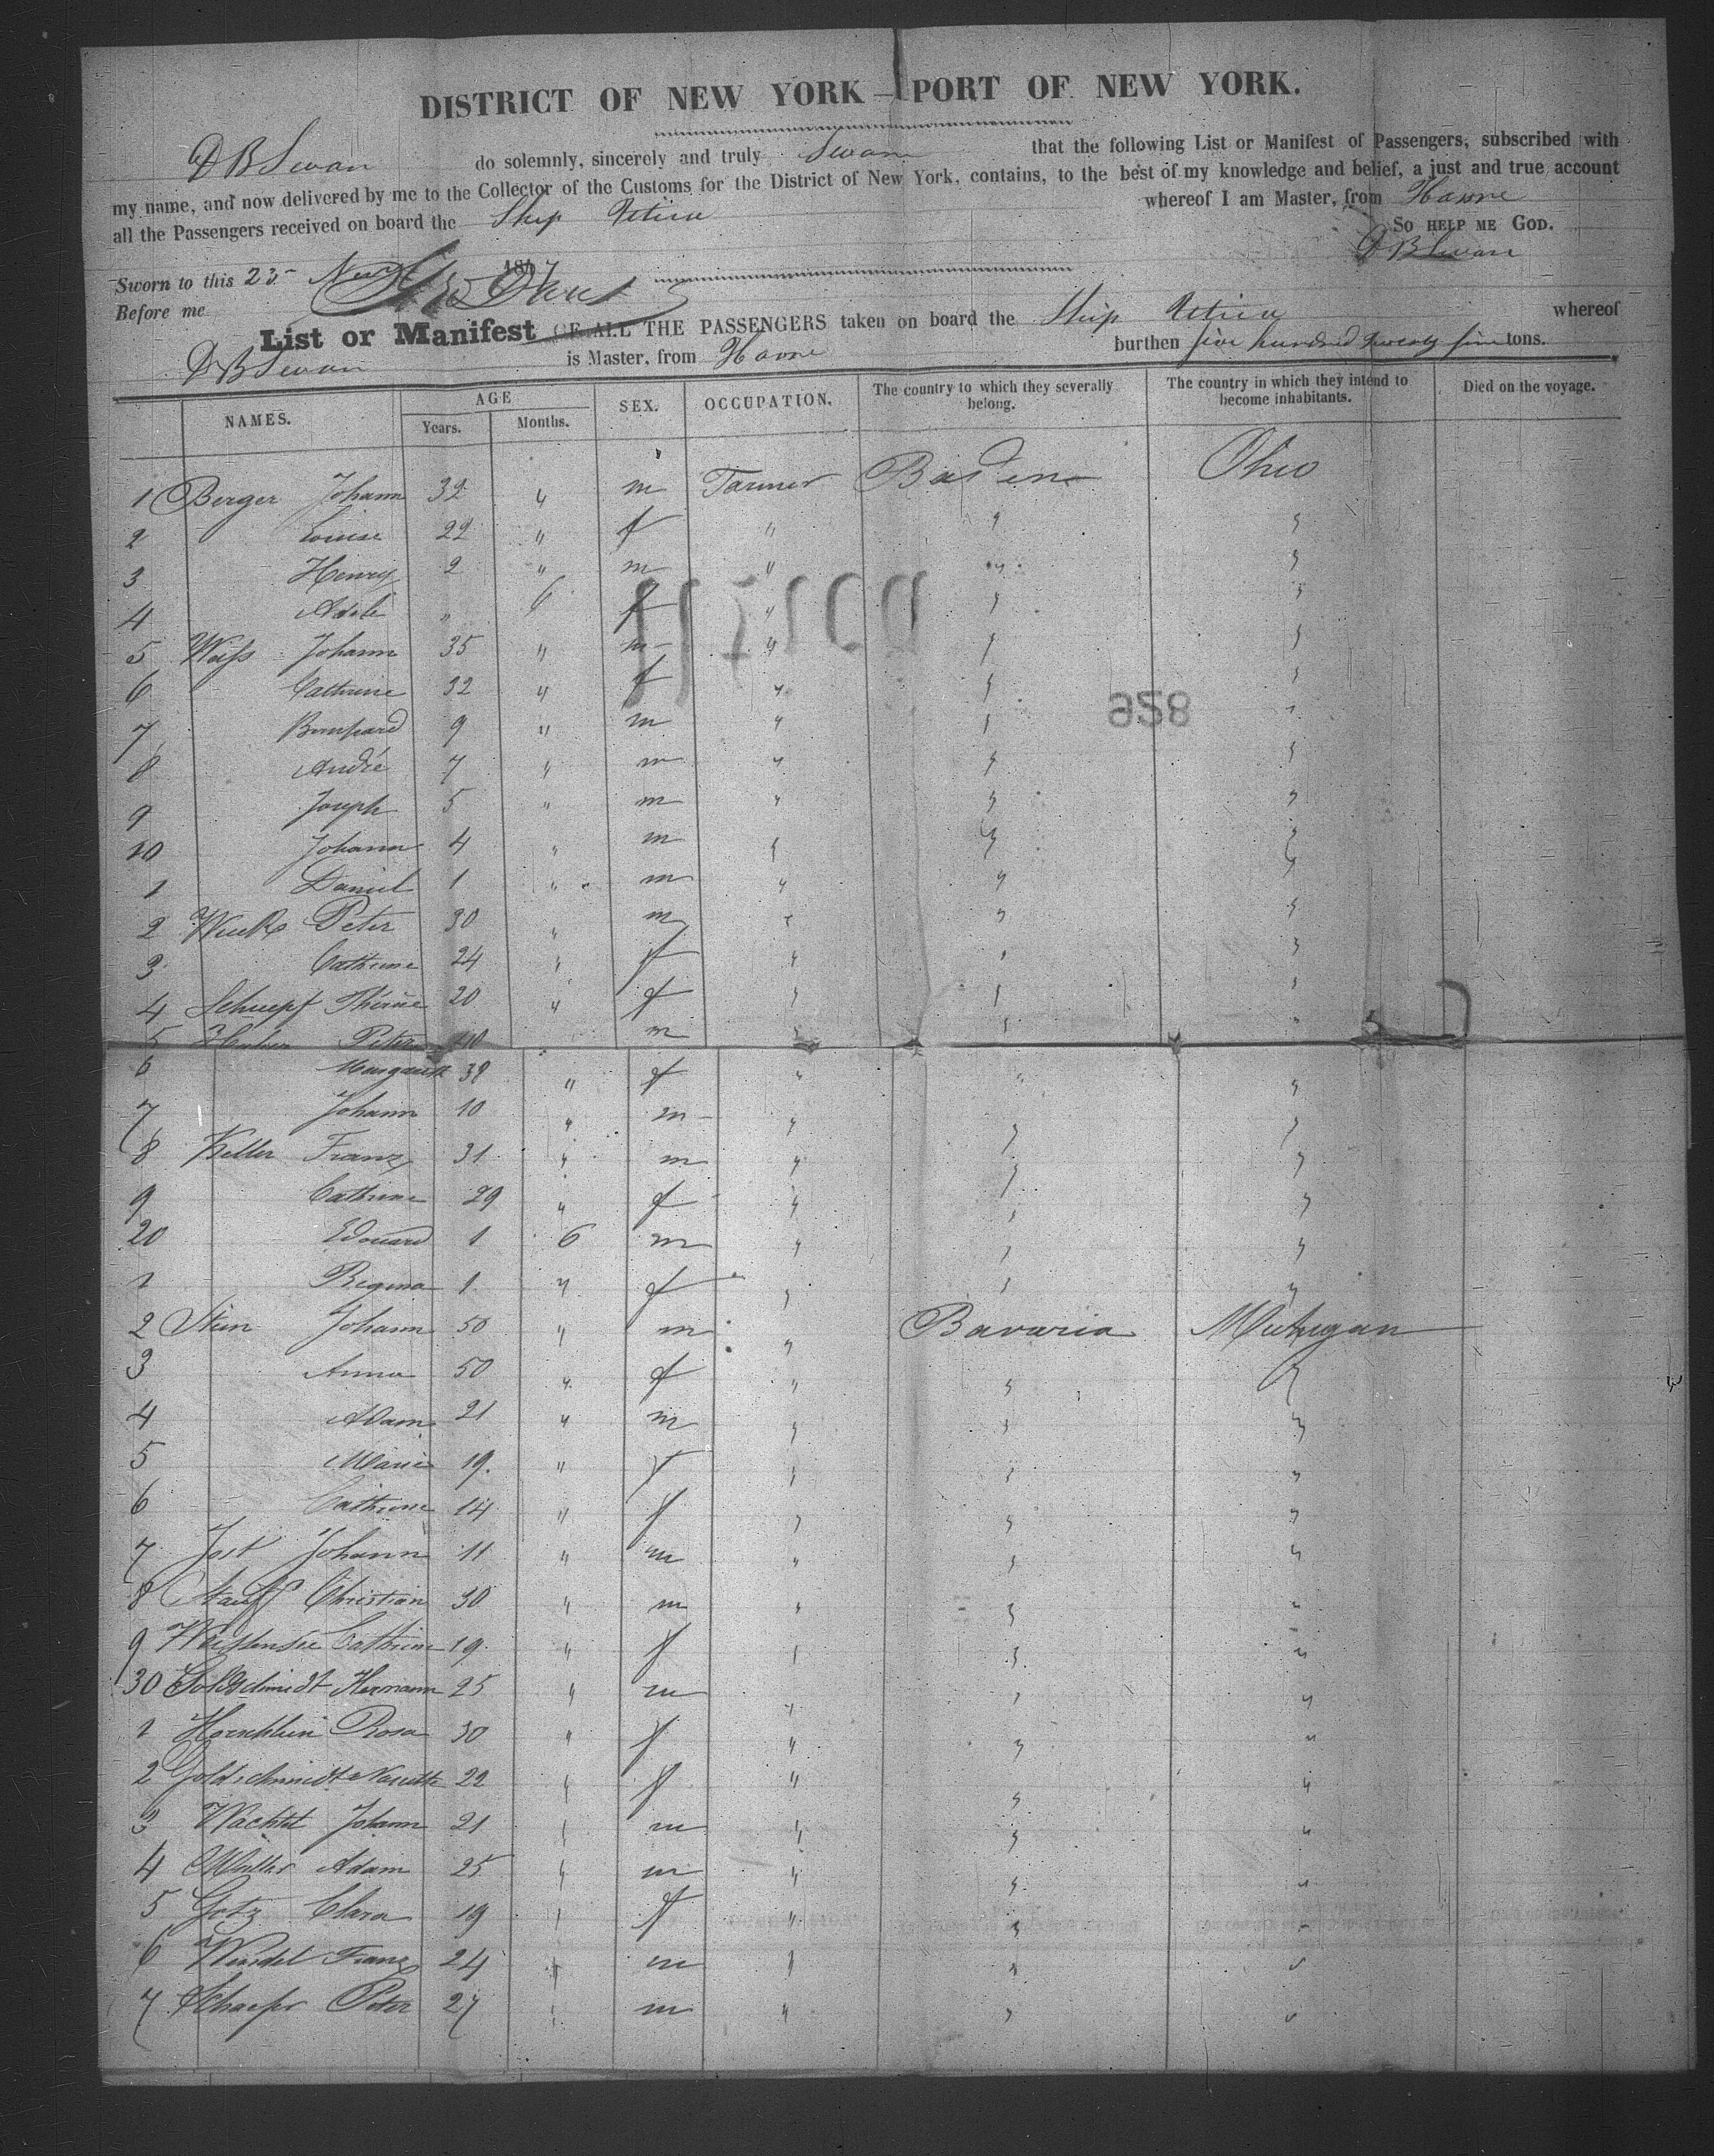 DISTRICT OF NEW YORK — PORT OF NEW YORK.
D B Swan do solemnly, sincerely and truly Swear that the following List or Manifest of Passengers, subscribed with
my name, and now delivered by me to the Collector of the Customs for the District of New York, contains, to the best of my knowledge and belief, a just and true account
all the Passengers received on board the Ship Utica whereof I am Master, from Havre
SO HELP ME GOD.
D B Swan
Sworn to this 25 Nov 1847
Before me
List or Manifest OF ALL THE PASSENGERS taken on board the Ship Utica whereof
D B Swan is Master, from Havre burthen five hundred twenty five tons.
NAMES. AGE Years. Months. SEX. OCCUPATION. The country to which they severally belong. The country in which they intend to become inhabitants. Died on the voyage.
1 Berger Johann 32 " m Farmer Baden Ohio
2 Louise 22 " f " " "
3 Henry 2 " m " " "
4 Adele " 6 f " " "
5 Weiss Johann 35 " m " " "
6 Cathrine 32 " f " " "
7 9 " m " " "
8 André 7 " m " " "
9 Joseph 5 " m " " "
10 Johann 4 " m " " "
1 Daniel 1 " m " " "
2 Peter 30 " m " " "
3 Cathrine 24 " f " " "
4 Schnepf Thérèse 20 " f " " "
5 Peter 40 m " " "
6 Margareth 39 " f " " "
7 Johann 10 " m " " "
8 Keller Franz 31 " m " " "
9 Cathrine 29 " f " " "
20 Edouard 1 6 m " " "
1 Regina 1 " f " " "
2 Stein Johann 50 " m " Bavaria Michigan
3 Anna 50 " f " " "
4 Adam 21 " m " " "
5 Marie 19 " f " " "
6 Cathrine 14 " f " " "
7 Jost Johann 11 " m " " "
8 Stauff Christian 30 " m " " "
9 Cathrine 19 " f " " "
30 Goldschmidt Hermann 25 " m " " "
1 Rosa 30 " f " " "
2 Goldschmidt Nanette 22 " f " " "
3 Wachtel Johann 21 " m " " "
4 Muller Adam 25 " m " " "
5 Gotz Clara 19 " f " " "
6 Wendel Franz 24 " m " " "
7 Schaefer Peter 27 " m " " "